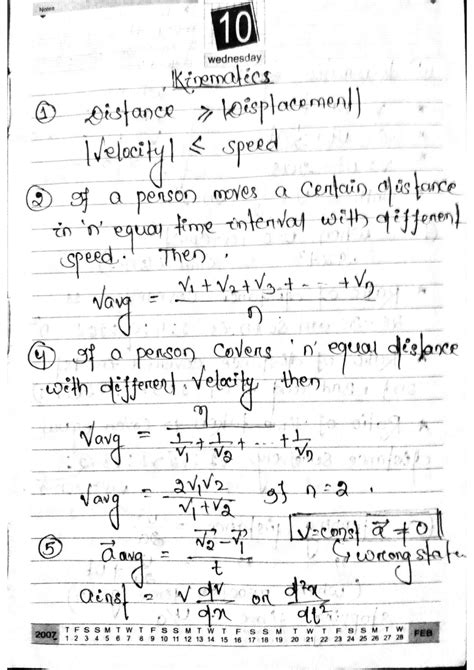 Notes
10
wednesday
Kinematics
① Distance ⩾ |Displacement|
|Velocity| ≤ speed
② If a person moves a certain distance
in 'n' equal time interval with different
speed. Then,
Vavg = (V₁ + V₂ + V₃ + - - - + Vn) / n
④ If a person covers 'n' equal distance
with different velocity, then
Vavg = n / (1/V₁ + 1/V₂ + ... + 1/Vn)
Vavg = 2V₁V₂ / (V₁ + V₂) if n = 2.
V = const a⃗ ≠ 0
⑤ a⃗avg = (V⃗₂ - V⃗₁) / t ↳ wrong state
ainst = V dV/dx or d²x/dt²
2007 T F S S M T W T F S S M T W T F S S M T W T F S S M T W FEB
1 2 3 4 5 6 7 8 9 10 11 12 13 14 15 16 17 18 19 20 21 22 23 24 25 26 27 28